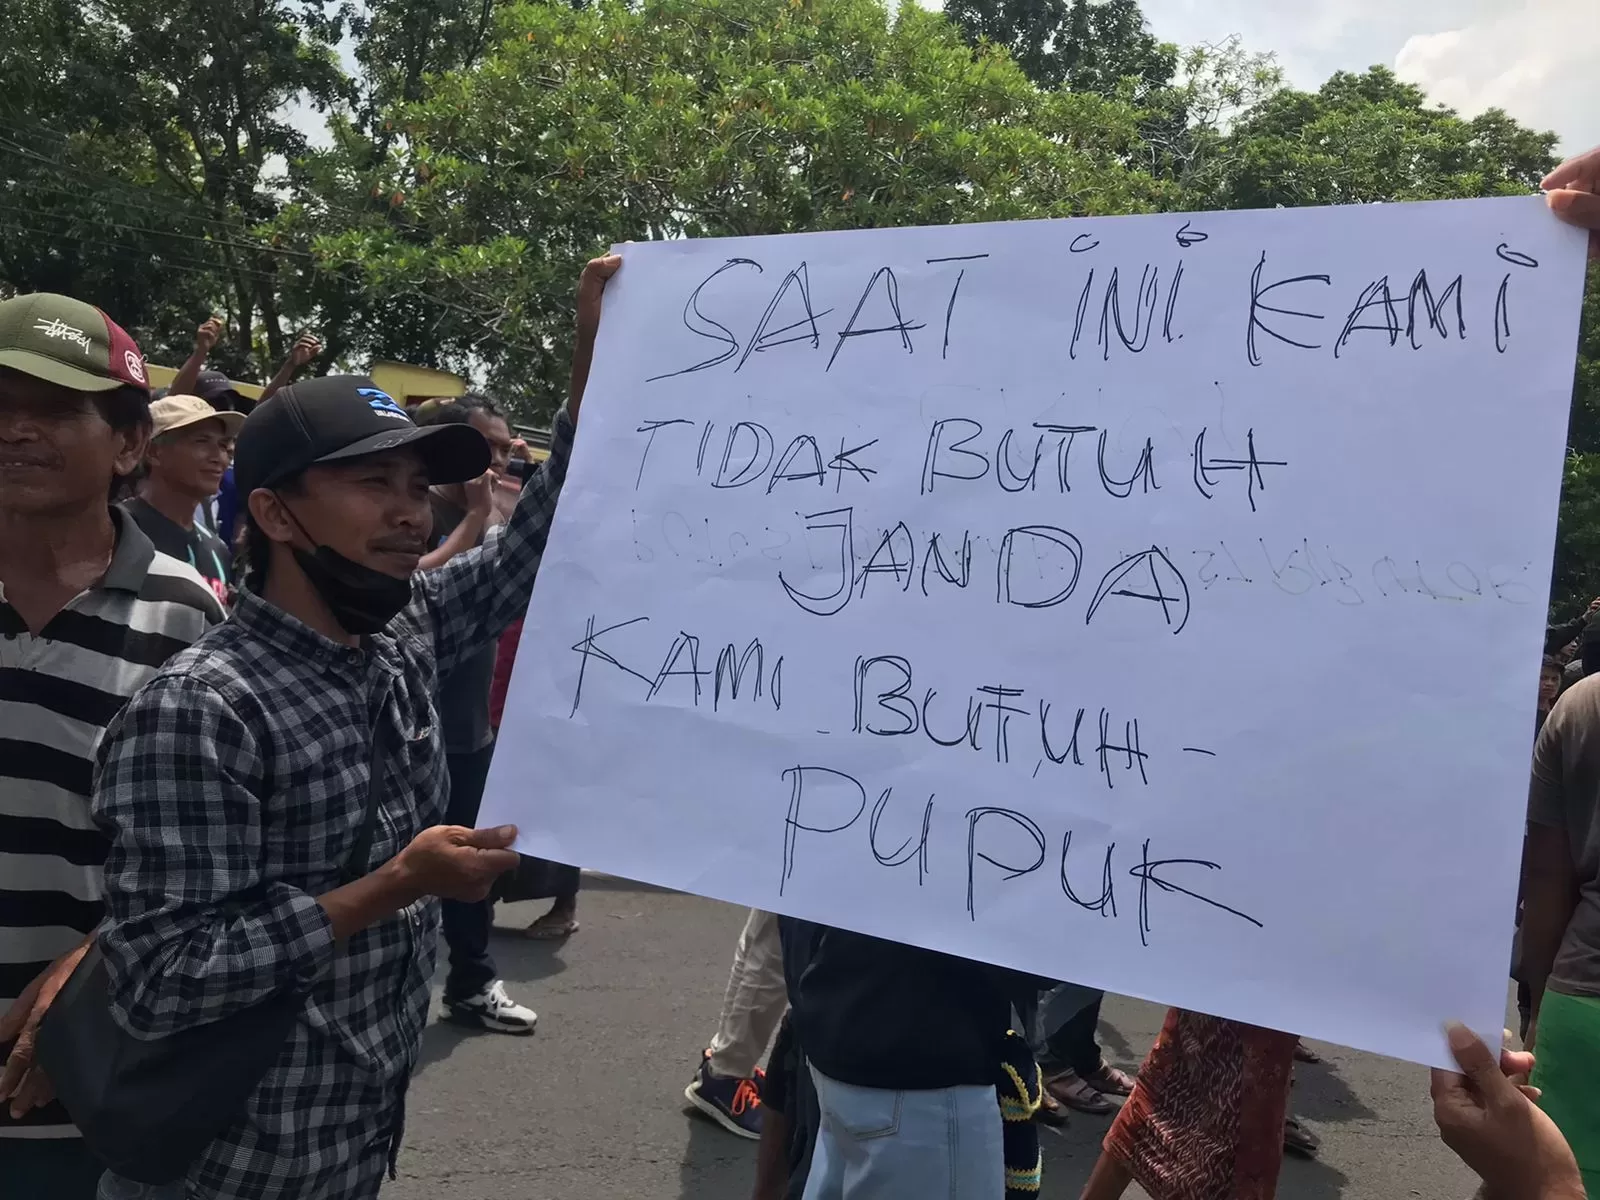 SAAT INI KAMI
TIDAK BUTUH
JANDA
KAMI BUTUH -
PUPUK
STUSSY